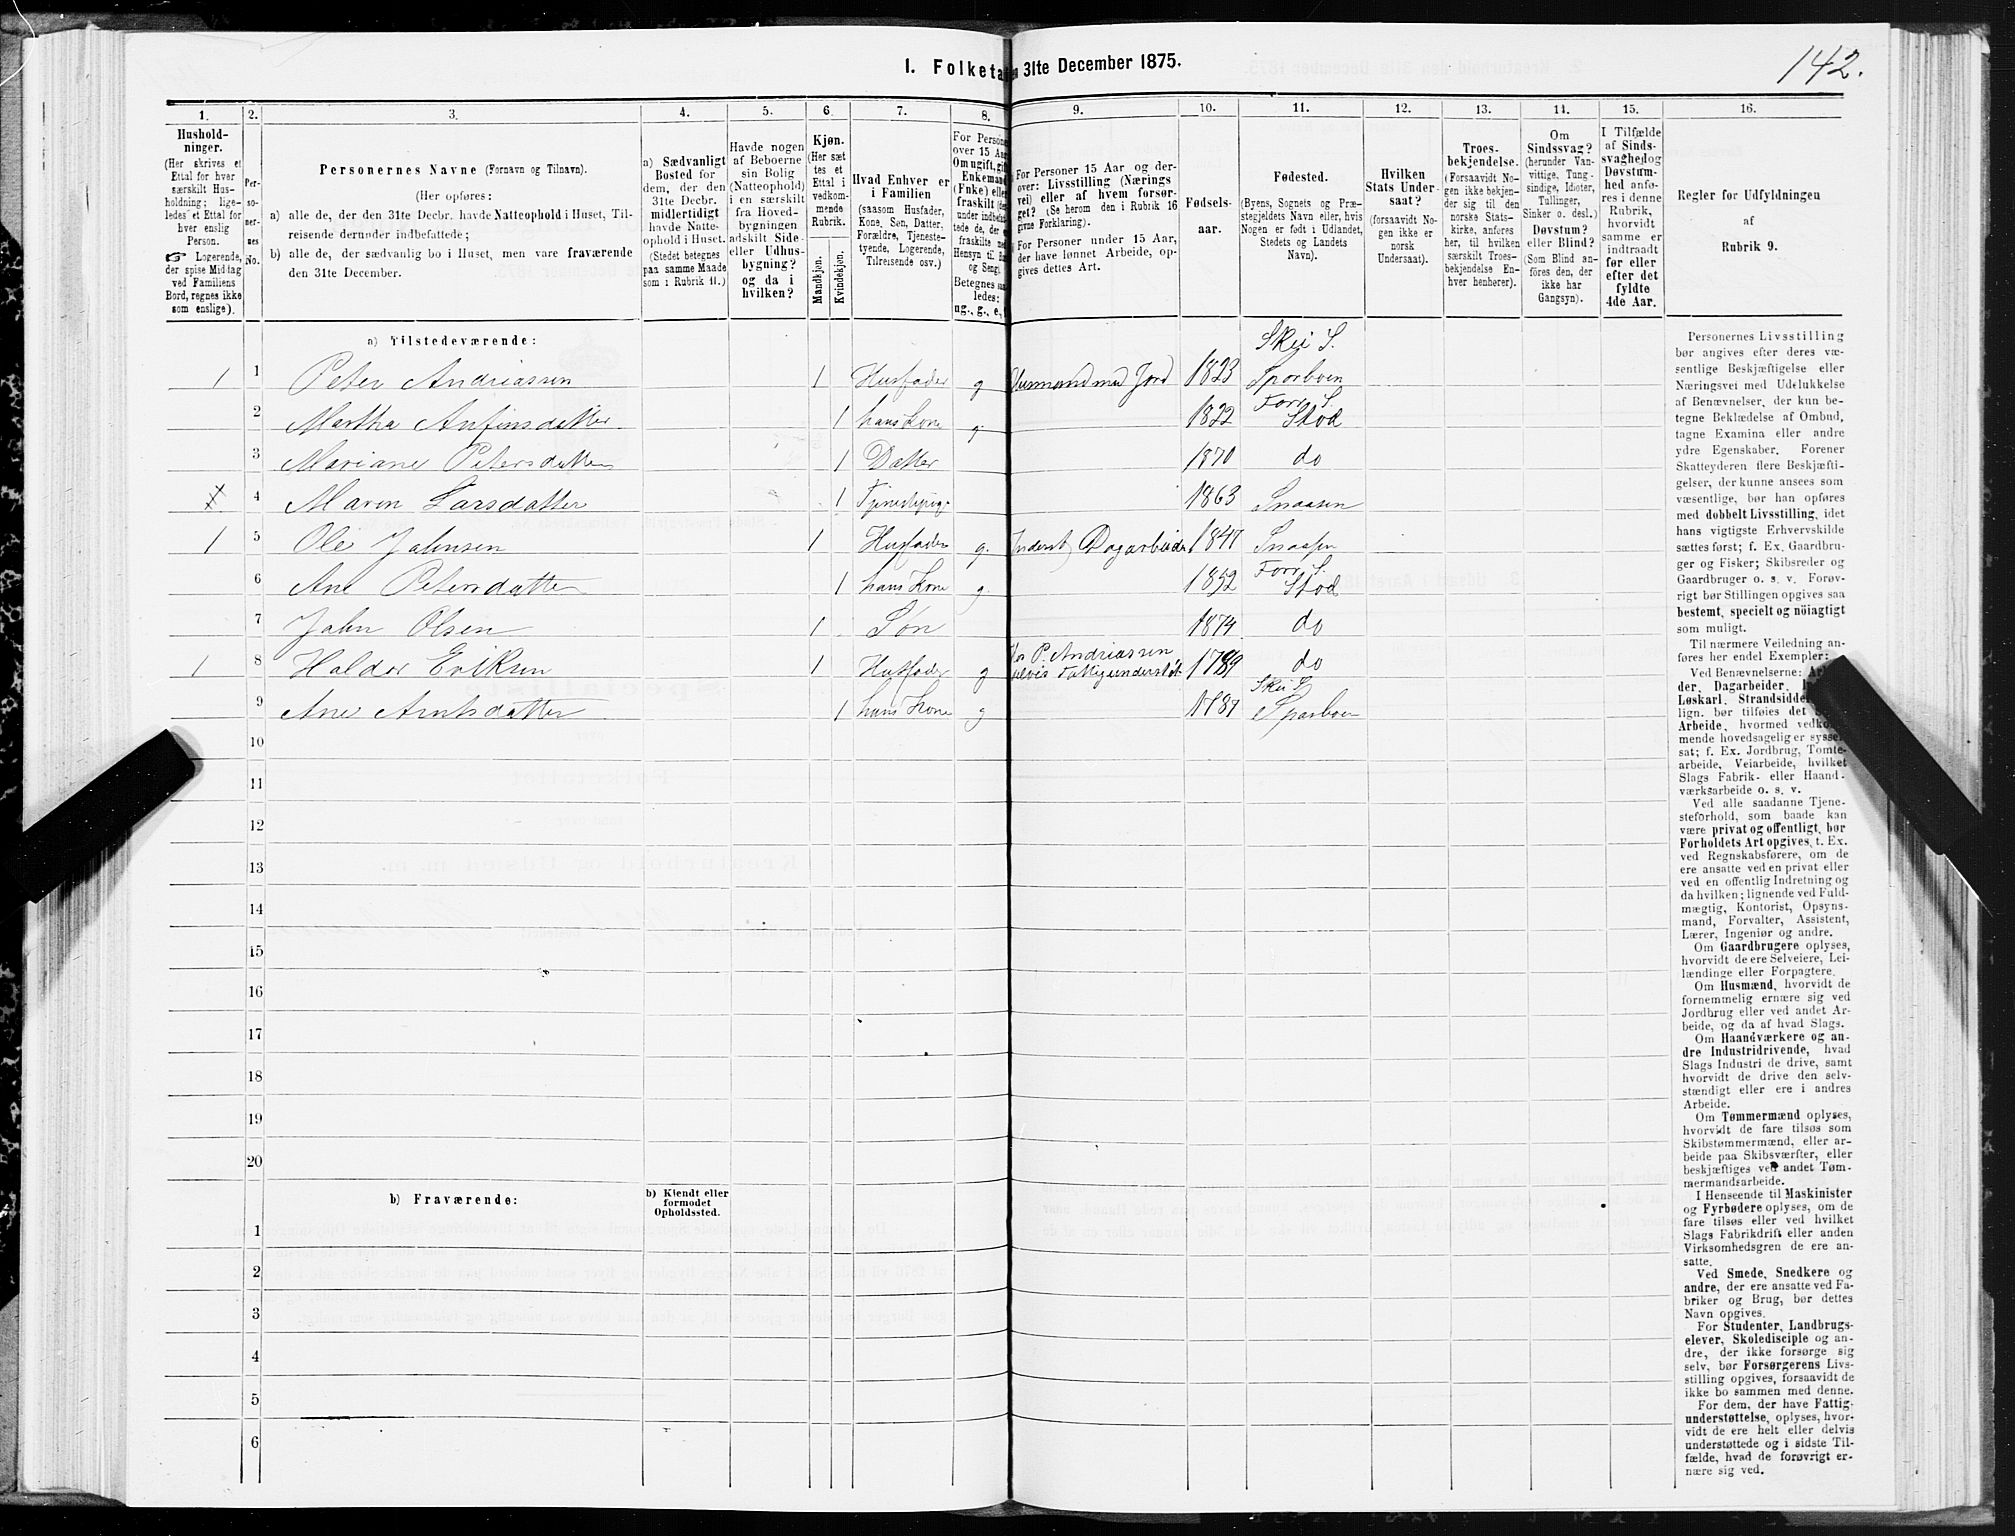 142.
I. Folketa en 31te December 1875.
1. 2. 3. 4. 5. 6. 7. 8. 9. 10. 11. 12. 13. 14. 15. 16.
Hushold-
ninger.
(Her skrives et
Ettal for hver
særskilt Hus-
holdning; lige-
ledes et Ettal for
hver enslig
Person.
☞ Logerende,
der spise Middag
ved Familiens
Bord, regnes ikke
som enslige).
Per-
so-
ner-
nes
No.
Personernes Navne (Fornavn og Tilnavn).
(Her opføres:
a) alle de, der den 31te Decbr. havde Natteophold i Huset, Til-
reisende derunder indbefattede;
b) alle de, der sædvanlig bo i Huset, men vare fraværende
den 31te December.
a) Sædvanligt
Bosted for
dem, der den
31te Decbr.
midlertidigt
havde Natte-
ophold i Huset.
(Stedet betegnes
paa samme Maade
som i Rubrik 11.)
Havde nogen
af Beboerne
sin Bolig
(Natteophold)
i en særskilt
fra Hoved-
bygningen
adskilt Side-
eller Udhus-
bygning?
og da i
hvilken?
Kjøn.
(Her sæt-
tes et
Ettal i
vedkom-
mende
Rubrik.
Mandkjøn.
Kvindekjøn.
Hvad Enhver er
i Familien
(saasom Husfader,
Kone, Søn, Datter,
Forældre, Tjeneste-
tyende, Logerende,
Tilreisende osv.)
For Persone
over 15 Aa
Om ugift, gift
Enkemand
(Fnke) elle
fraskilt (de
under indbefat-
tede de, de er
fraskilte me
Hensyn til B
og Seng).
Betegnes saa-
ledes:
ug., g., e,
For Personer 15 Aar og der-
over: Livsstilling (Nærings
vei) eller af hvem forsør-
get? (Se herom den i Rubrik 16
givne Forklaring).
For Personer under 15 Aar,
der have lønnet Arbeide, op-
gives dettes Art.
Fødsels-
aar.
Fødested.
(Byens, Sognets og Præ-
stegjeldets Navn eller, hvis
Nogen er født i Udlandet,
Stedets og Landets
Navn).
Hvilken
Stats Under-
saat?
(forsaavidt No-
gen ikke er
norsk
Undersaat).
Troes-
bekjendelse.
(Forsaavidt No-
gen ikke bekjen-
der sig til den
norske Stats-
kirke, anføres
her, til hvilken
særskilt Troes-
bekjendelse En-
hver henhører).
Om
Sindssvag?
(herunder Van-
vittige, Tung-
sindige, Idioter,
Tullinger,
Sinker o. desl.)
Døvstum?
eller Blind?
(Som Blind an-
føres den, der
ikke har
Gangsyn).
I Tilfælde
af Sinds-
svaghed og
Døvstum-
hed anfø-
res i denne
Rubrik,
hvorvidt
samme er
indtraadt
før eller
efter det
fyldte
4de Aar.
Regler for Udfyldningen
af
Rubrik 9.
a) Tilstedeværende:
1 1 Peter Andriassen 1 Husfader g Husmand med Jord 1823 Skei S. Sparboen
2 Martha Anfinsdatter 1 hans Kone g 1822 For S. Stod
3 Mariane Petersdatter 1 Datter 1870 do
4 Maren Larsdatter 1 Tjenestepige 1863 Snaasen
1 5 Ole Jahnsen 1 Husfader g. Inderst Dagarbeider 1847 Snaasen
6 Ane Petersdatter 1 hans Kone g. 1852 For S. Stod
7 Jahn Olsen 1 Søn 1874 do
1 8 Haldor Eriksen 1 Husfader g P. Andriassen delvis Fattigunderstøt 1789 do
9 Ane Arntsdatter 1 hans Kone g 1787 Skei S. Sparboen
10
11
12
13
14
15
16
17
18
19
20
b) Fraværende:
b) Kjendt eller
formodet
Opholdssted.
1
2
3
4
5
6
Personernes Livsstilling
bør angives efter deres væ-
sentlige Beskjæftigelse eller
Næringsvei med Udelukkelse
af Benævnelser, der kun be-
tegne Beklædelse af Ombud,
tagne Examina eller andre
ydre Egenskaber. Forener
Skatteyderen flere Beskjæfti-
gelser, der kunne ansees som
væsentlige, bør han opføres
med dobbelt Livsstilling, idet
hans vigtigste Erhvervskilde
sættes først; f. Ex. Gaardbru-
ger og Fisker; Skibsreder og
Gaardbruger o. s. v. Forøv-
rigt bør Stillingen opgives saa
bestemt, specielt og nöiagtigt
som muligt.
Til nærmere Veiledning an-
føres her endel Exempler:
Ved Benævnelserne:
der, Dagarbeider,
Løskarl, Strandsidder
lign. bør tilføies det
Arbeide, hvormed vedkom-
mende hovedsagelig er syssel-
sat; f. Ex. Jordbrug, Tomte-
arbeide, Veiarbeide, hvilket
Slags Fabrik- eller Haand-
værksarbeide o. s. v.
Ved alle saadanne Tjene-
steforhold, som baade kan
være privat og offentligt, bør
Forholdets Art opgives, t. Ex.
ved Regnskabsførere, om de
ere ansatte ved en privat eller
ved en offentlig Indretning og
da hvilken; lignende ved Fuld-
mægtig, Kontorist, Opsyns-
mand, Forvalter, Assistent,
Lærer, Ingeniør og andre.
Om Gaardbrugere oplyses,
hvorvidt de ere Selveiere, Lei-
lændinge eller Forpagtere.
Om Husmænd, hvorvidt de
fornemmelig ernære sig ved
Jordbrug eller ved andet Ar-
beide, og da af hvad Slags.
Om Haandværkere og an-
dre Industridrivende, hvad
Slags Industri de drive, samt
hvorvidt de drive den selv-
stændigt eller ere i andres
Arbeide.
Om Tømmermænd oplyses,
hvorvidt de fare tilsøs som
Skibstømmermænd, eller ar-
beide paa Skibsværfter, eller
beskjæftiges ved andet Tøm-
mermandsarbeide.
I Henseende til Maskinister
og Fyrbødere oplyses, om de
fare tilsøs eller ved hvilket
Slags Fabrikdrift eller anden
Virksomhedsgren de ere an-
satte.
Ved Smede, Snedkere og
andre, der ere ansatte ved Fa-
briker og Brug, bør dettes
Navn opgives.
For Studenter, Landbrugs-
elever, Skoledisciple og an-
dre, der ikke forsørge sig
selv, bør Forsørgerens Livs-
stilling opgives, forsaavidt de
ikke bo sammen med denne.
For dem, der have Fattig-
understøttelse, oplyses, hvor-
vidt de ere helt eller delvis
understøttede og i sidste Til-
fælde, hvad de forøvrigt er-
nære sig ved.